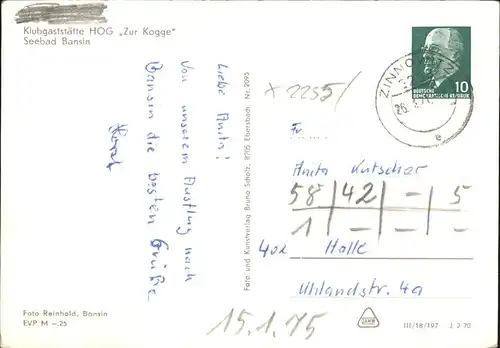 Klubgaststätte HOG „Zur Kogge"
Seebad Bansin
Liebe Anita!
Von unserem Ausflug nach
Bansin die besten Grüße
Horst
Foto Reinhold, Bansin
EVP M –.25
Foto- und Kunstverlag Bruno Scholz, 8705 Ebersbach Nr. 2095
x 2235/
DEUTSCHE
DEMOKRATISCHE REPUBLIK
10
ZINNO
e
Fr.
Anita Kutscher
58 | 42 | – | 5
1 | – | – | –
402 Halle
Uhlandstr. 4a
15.1.75
III/18/197 J 2 70